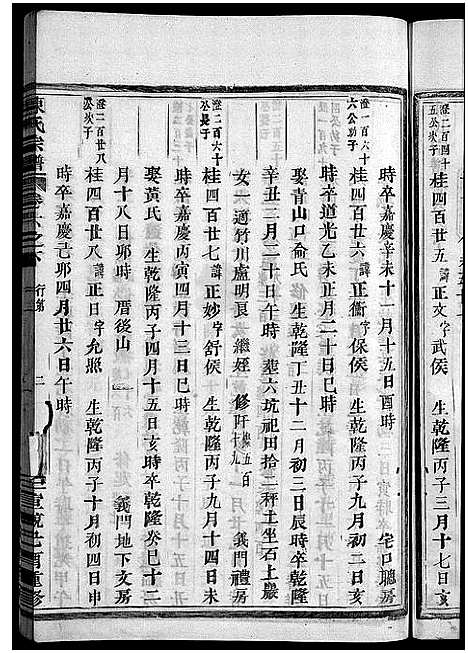 澄二百四十五公次子
桂四百廿五 諱正文字武侯 生乾隆丙子三月十七日亥
時卒嘉慶辛未十一月十五日酉時 宅口聽房
澄一百六十六公幼子
桂四百廿六 諱正衝字保侯 生乾隆丙子九月初二日亥
時卒道光乙未正月二十日巳時
娶青山口俞氏 生乾隆丁丑十二月初三日辰時卒乾隆
辛丑二月二十日午時 塟六坑祀田拾二秤土坐石上嚴
女一適竹川盧明良女繼姪 修阡 五百 義門禮房
澄二百六十公長子
桂四百廿七 諱正妙字舒侯 生乾隆丙子九月十四日未
時卒嘉慶丙寅四月十三日巳時
娶黃氏 生乾隆丙子四月十五日亥時卒乾隆癸巳十二
月十八日卯時 厝後山 義門地下文房
澄二百廿八公次子
桂四百廿八 諱正日字允照 生乾隆丙子十月初四日申
時卒嘉慶己卯四月廿六日午時
陳氏宗譜 卷 之下 行第 二
宣統乙酉重修